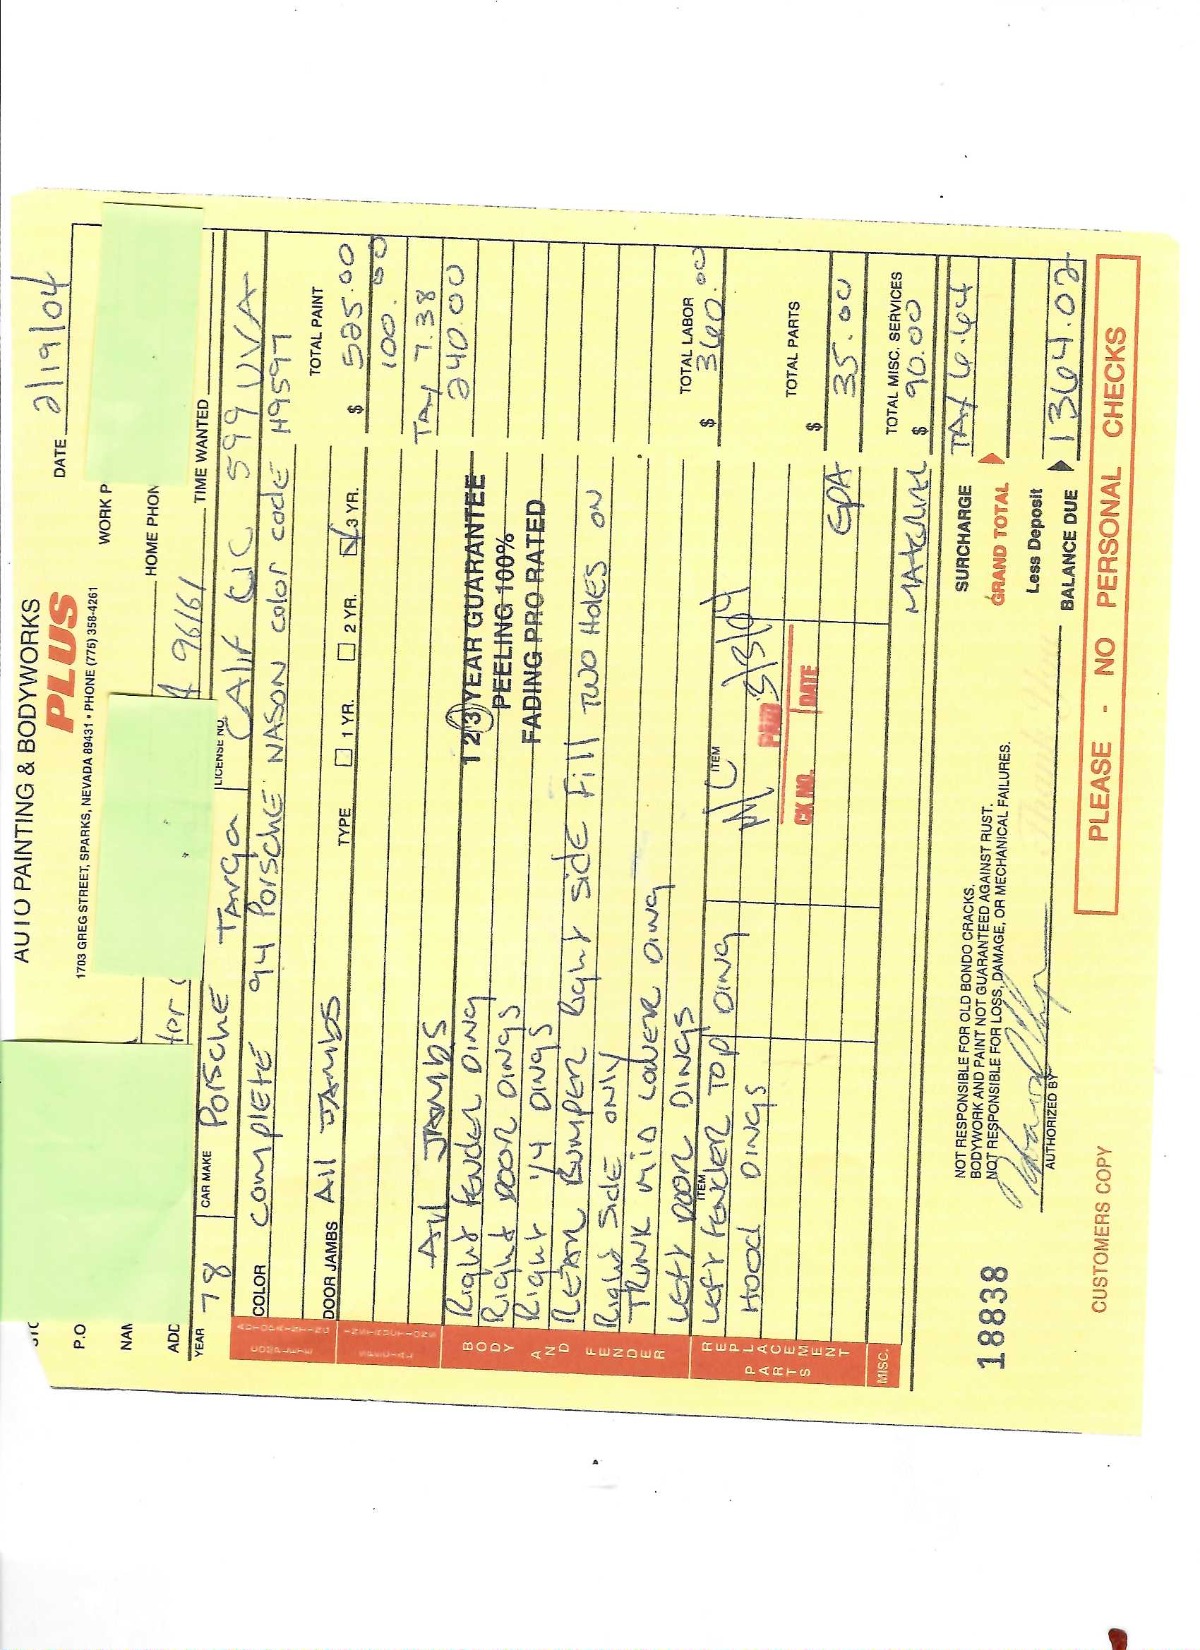 AUTO PAINTING & BODYWORKS
PLUS
DATE 2/19/04
1703 GREG STREET, SPARKS, NEVADA 89431 • PHONE (775) 358-4261
P.O
WORK P
NAM
HOME PHON
ADD
96161
YEAR 78 CAR MAKE PORSCHE TARGA LICENSE NO. CALIF LIC 599 UVA TIME WANTED
COLOR COMPLETE 94 PORSCHE NASON color code H9597
DOOR JAMBS All JAMBS
TYPE 1 YR. 2 YR. 3 YR.
TOTAL PAINT
$ 525.00
100.00
All JAMBS
TAX 7.38
BODY AND FENDER
Right Fender DING 240.00
Right DOOR DINGS
Right 1/4 DINGS
1 2 3 YEAR GUARANTEE
PEELING 100%
FADING PRO RATED
REAR BUMPER Right side Fill TWO HOLES ON
Right Side only
TRUNK MID LOWER DING
LEFT DOOR DINGS
TOTAL LABOR
$ 360.00
REPLACEMENT PARTS
ITEM
ITEM
LEFT FENDER TOP DING
HOOD DINGS
M/C
PAID 3/3/04
CK NO. DATE
TOTAL PARTS
$
EPA 35.00
MISC.
TOTAL MISC. SERVICES
MATERIAL $ 90.00
SURCHARGE TAX 6.64
GRAND TOTAL
Less Deposit
BALANCE DUE 1364.02
NOT RESPONSIBLE FOR OLD BONDO CRACKS.
BODYWORK AND PAINT NOT GUARANTEED AGAINST RUST.
NOT RESPONSIBLE FOR LOSS, DAMAGE, OR MECHANICAL FAILURES.
18838
AUTHORIZED BY
CUSTOMERS COPY
PLEASE - NO PERSONAL CHECKS